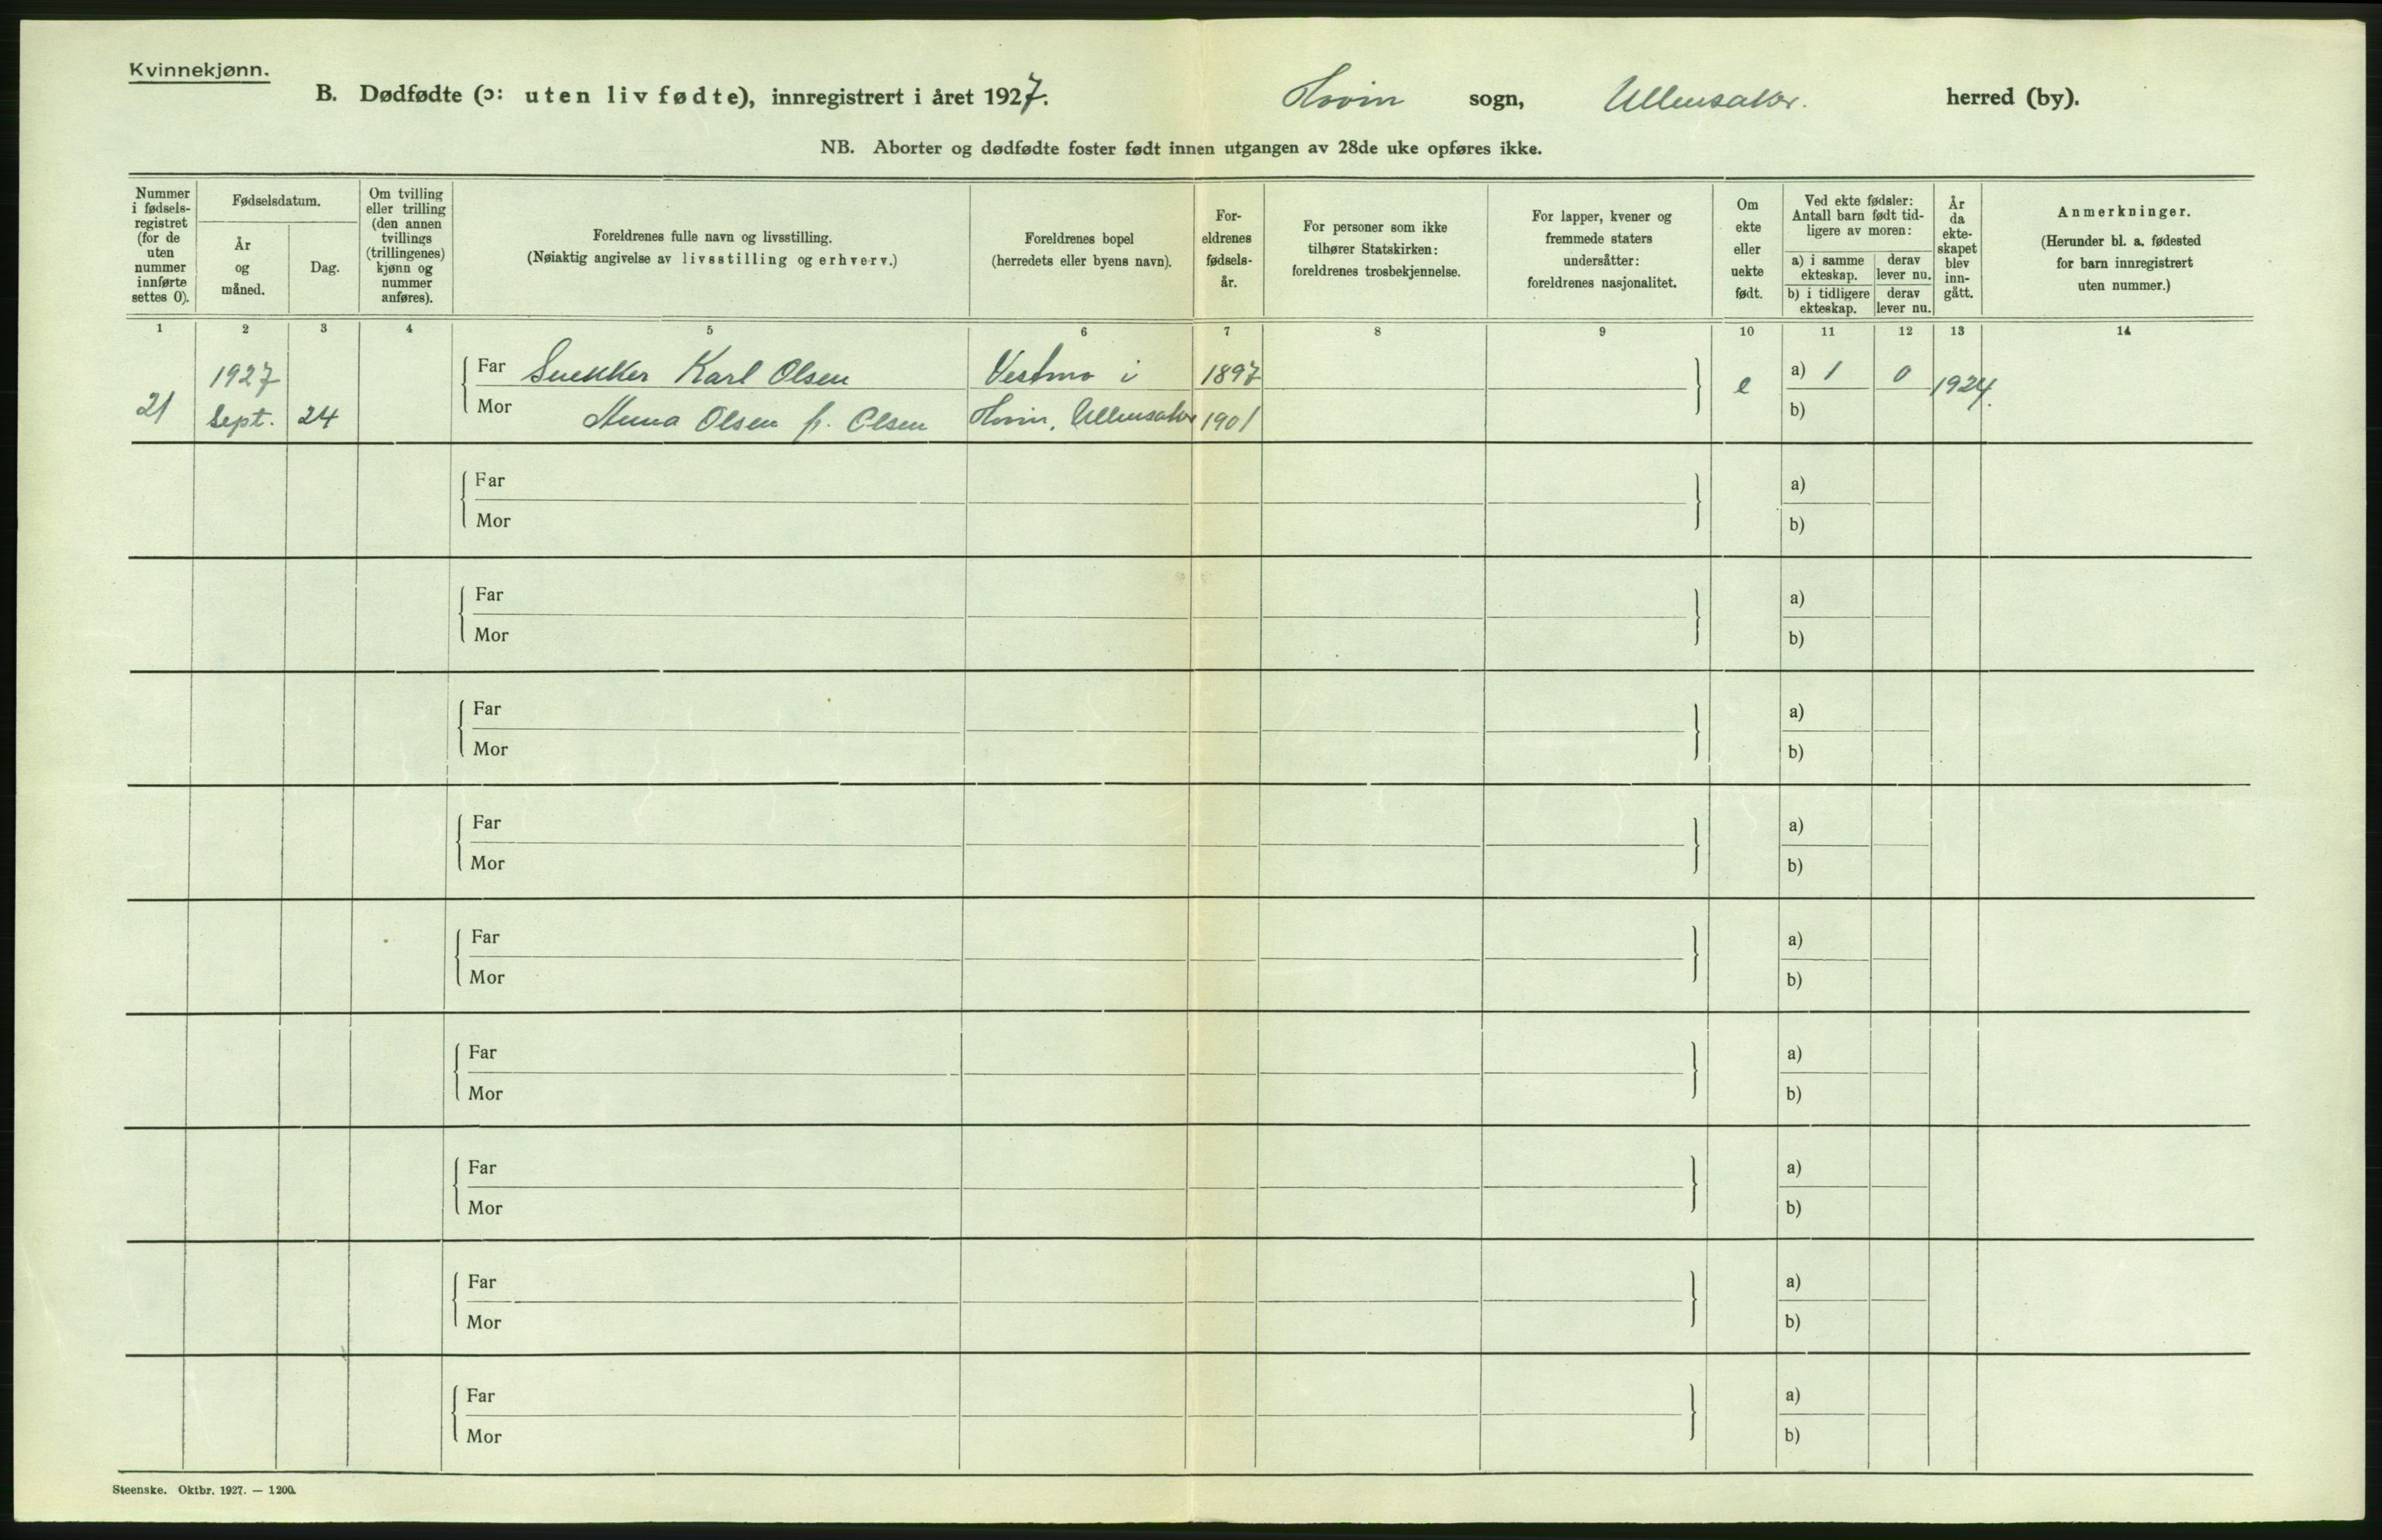 Kvinnekjønn.
B. Dødfødte (ɔ: uten liv fødte), innregistrert i året 1927. Hovin sogn, Ullensaker. herred (by).
NB. Aborter og dødfødte foster født innen utgangen av 28de uke opføres ikke.
Nummer i fødsels-registret (for de uten nummer innførte settes 0).
Fødselsdatum.
År og måned.
Dag.
Om tvilling eller trilling (den annen tvillings (trillingenes) kjønn og nummer anføres).
Foreldrenes fulle navn og livsstilling.
(Nøiaktig angivelse av livsstilling og erhverv.)
Foreldrenes bopel
(herredets eller byens navn).
For-eldrenes fødsels-år.
For personer som ikke tilhører Statskirken: foreldrenes trosbekjennelse.
For lapper, kvener og fremmede staters undersåtter: foreldrenes nasjonalitet.
Om ekte eller uekte født.
Ved ekte fødsler: Antall barn født tid-ligere av moren:
a) i samme ekteskap.
derav lever nu.
b) i tidligere ekteskap.
derav lever nu.
År da ekte-skapet blev inn-gått.
Anmerkninger.
(Herunder bl. a. fødested for barn innregistrert uten nummer.)
1 2 3 4 5 6 7 8 9 10 11 12 13 14
1927 Far Snekker Karl Olsen Vestmo i 1897 e a) 1 0 1924.
21 Sept. 24 Mor Anna Olsen f. Olsen Hovin, Ullensaker 1901 b)
Far a)
Mor b)
Far a)
Mor b)
Far a)
Mor b)
Far a)
Mor b)
Far a)
Mor b)
Far a)
Mor b)
Far a)
Mor b)
Far a)
Mor b)
Far a)
Mor b)
Steenske. Oktbr. 1927. — 1200.